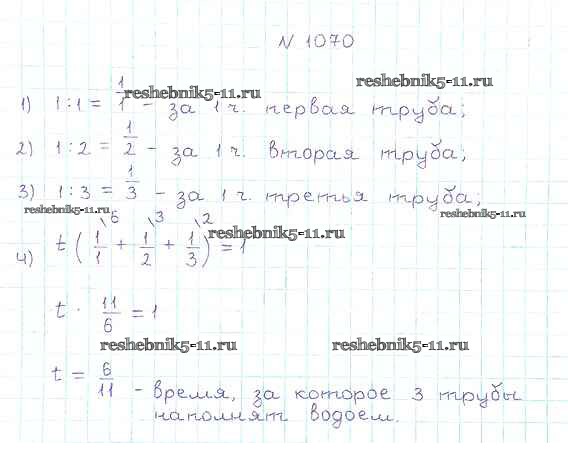 N 1070
reshebnik5-11.ru
reshebnik5-11.ru
1) 1 : 1 = 1/1 - за 1 ч. первая труба;
2) 1 : 2 = 1/2 - за 1 ч. вторая труба;
3) 1 : 3 = 1/3 - за 1 ч. третья труба;
reshebnik5-11.ru
reshebnik5-11.ru
4) t (1/1 \6 + 1/2 \3 + 1/3 \2) = 1
reshebnik5-11.ru
t · 11/6 = 1
reshebnik5-11.ru
reshebnik5-11.ru
t = 6/11 - время, за которое 3 трубы
наполнят водоем.